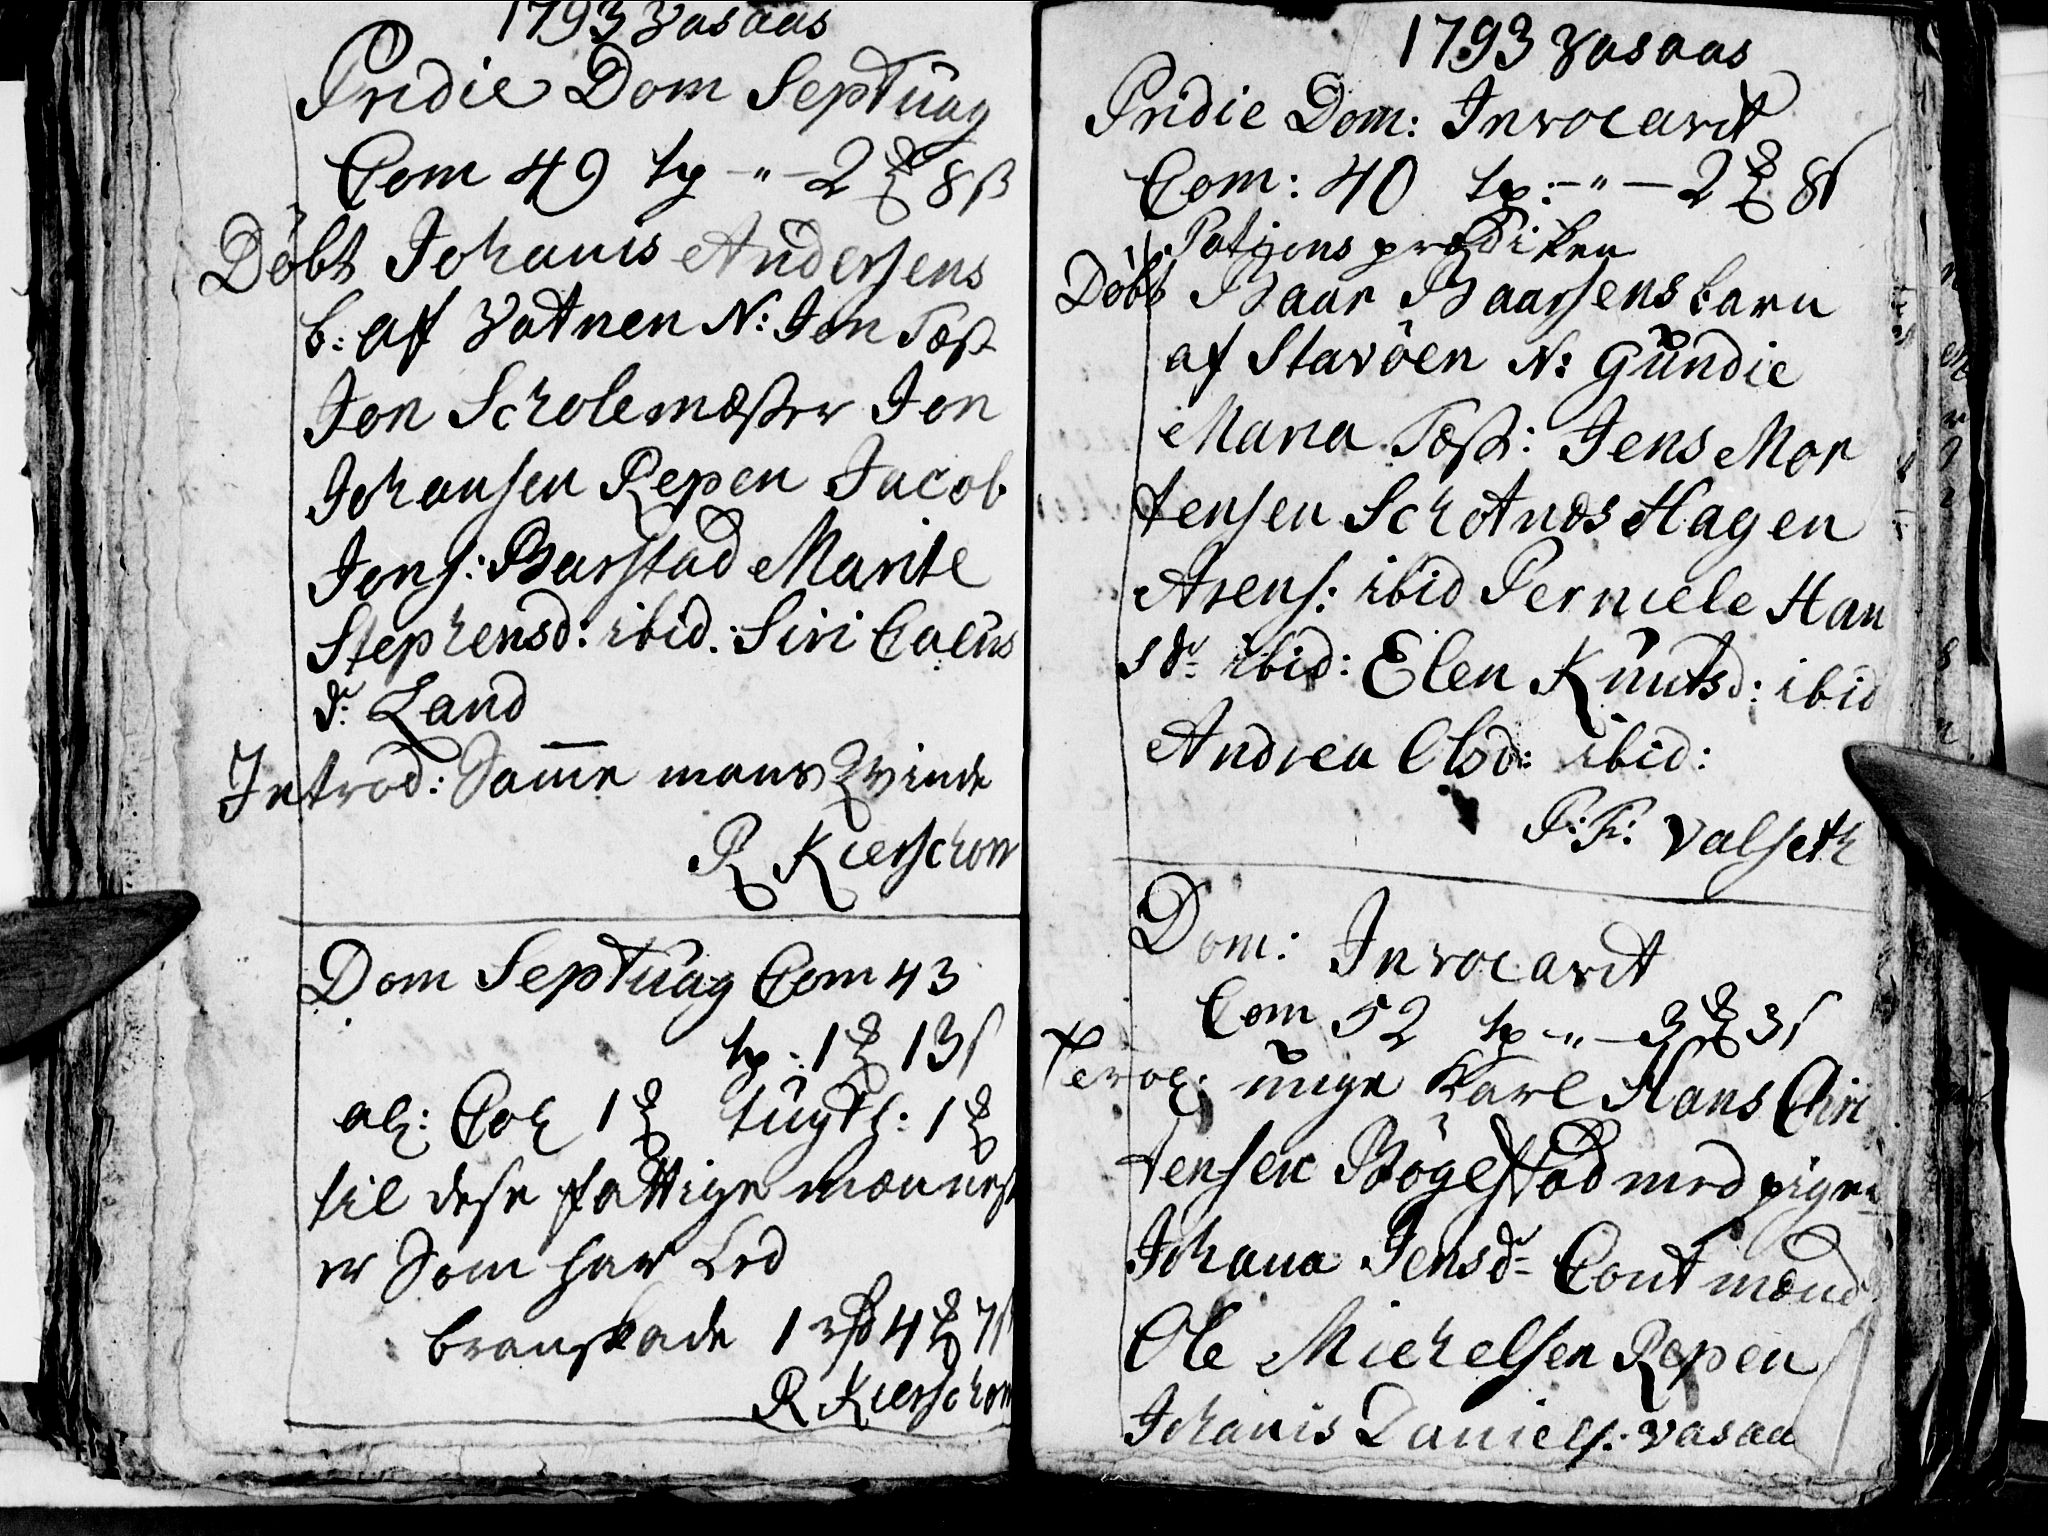 1793 Vasaas
Pridie Dom Septuag
Com 49 tp -"- 2 ℔ 8 ß
Döbt Johanis Andersens
b: af Vatnen N: Jon Tæst
Jon Scholemæster Jon
Johansen Repen Jacob
Jons: Barstad Marite
Stephensd: ibid: Siri Caius
dr. Land
Introd: Samme mans Qvinde
R Kierschow
Dom Septuag Com 43
tp: 1 13 s
1 tugth: 1
til dese fattige mænnesk
er Som har Led
branskade 1 rd 4 7 s
R Kierschow
1793 Vasaas
Pridie Dom: Invocavit
Com: 40 tp: -"- 2 8 s
prædiken
Döbt Baar Baarsens barn
af Stavöen N: Gundie
Maria Tæst: Jens Mor
tensen Schotnæs Hagen
Arens: ibid Perniele Han
sdr. ibid: Elen Knutsd: ibid
Andrea Olsd: ibid:
P: F: Valseth
Dom: Invocavit
Com 52 tp -"- 3 3 s
unge Karl Hans Chri
tensen Bögestad med pigen
Johana Jensdr. Cout mænd
Ole Michelsen Repen
Johanis Daniels: Vasaa